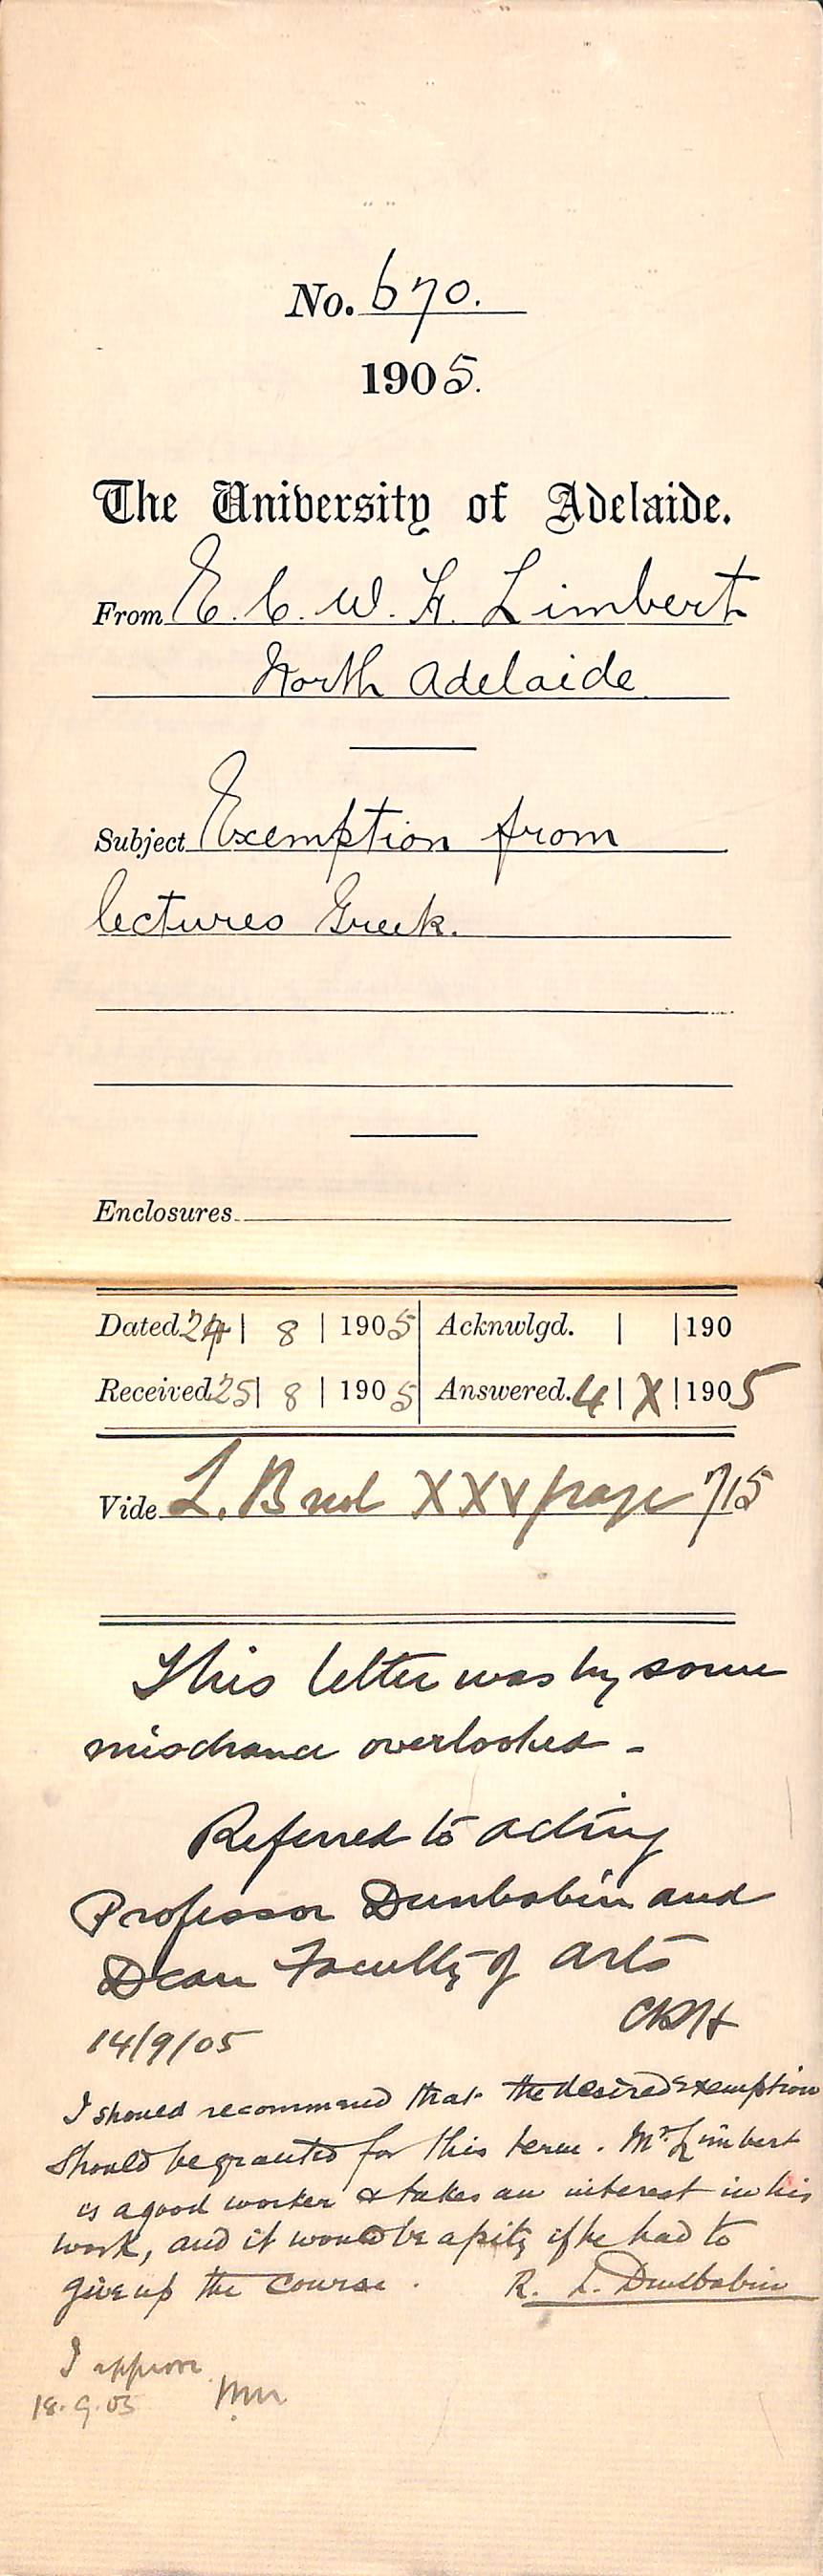 No. 670.
1905.
The University of Adelaide.
From E. C. W. H. Limbert
North Adelaide
Subject Exemption from
lectures Greek.
Enclosures
Dated 24 | 8 | 1905 Acknwlgd. | | 190
Received 25 | 8 | 1905 Answered. 4 | X | 1905
Vide L. B XXV page 715
This letter was by some
mischance overlooked -
Referred to acting
Professor Dunbabin and
Dean Faculty of Arts
14/9/05
I should recommend that the desired exemption
should be granted for this term. Mr Limbert
is a good worker & takes an interest in his
work, and it would be a pity if he had to
give up the course. R. L. Dunbabin
I approve
18.9.05